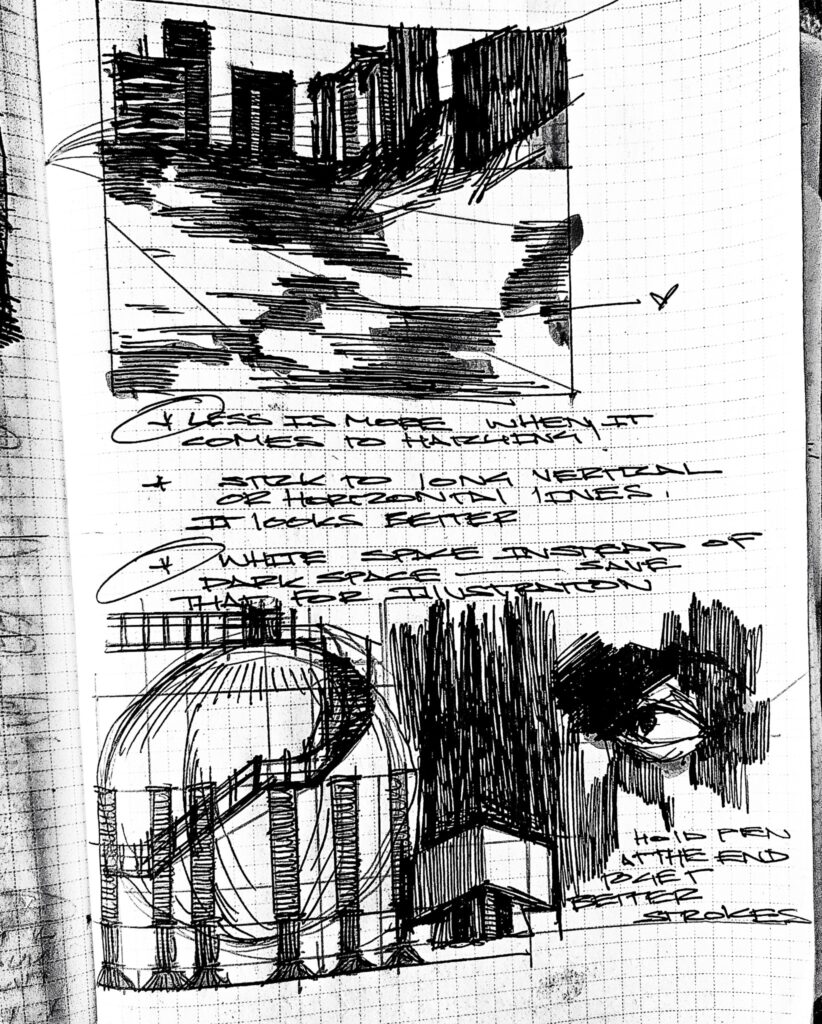 * LESS IS MORE WHEN IT
COMES TO HATCHING!
* STICK TO LONG VERTICAL
OR HORIZONTAL LINES.
IT LOOKS BETTER
* WHITE SPACE INSTEAD OF
DARK SPACE — SAVE
THAT FOR ILLUSTRATION
HOLD PEN
AT THE END
TO GET
BETTER
STROKES